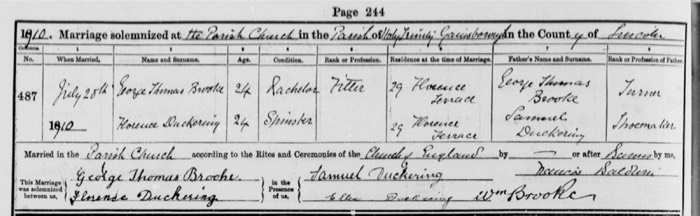 Page 244
1910. Marriage solemnized at the Parish Church in the Parish of Holy Trinity Gainsborough in the County of Lincoln
Columns:— 1 2 3 4 5 6 7 8
No. When Married. Name and Surname. Age. Condition. Rank or Profession. Residence at the time of Marriage. Father's Name and Surname. Rank or Profession of Father.
487 July 20th 1910 George Thomas Brooke 24 Bachelor Fitter 29 Florence Terrace George Thomas Brooke Turner
Florence Duckering 24 Spinster 29 Florence Terrace Samuel Duckering Shoemaker
Married in the Parish Church according to the Rites and Ceremonies of the Church of England by — or after Banns by me,
Francis Baldwin
This Marriage was solemnized between us, George Thomas Brooke. in the Presence of us, Samuel Duckering
Florence Duckering Ellen Duckering Wm Brooke